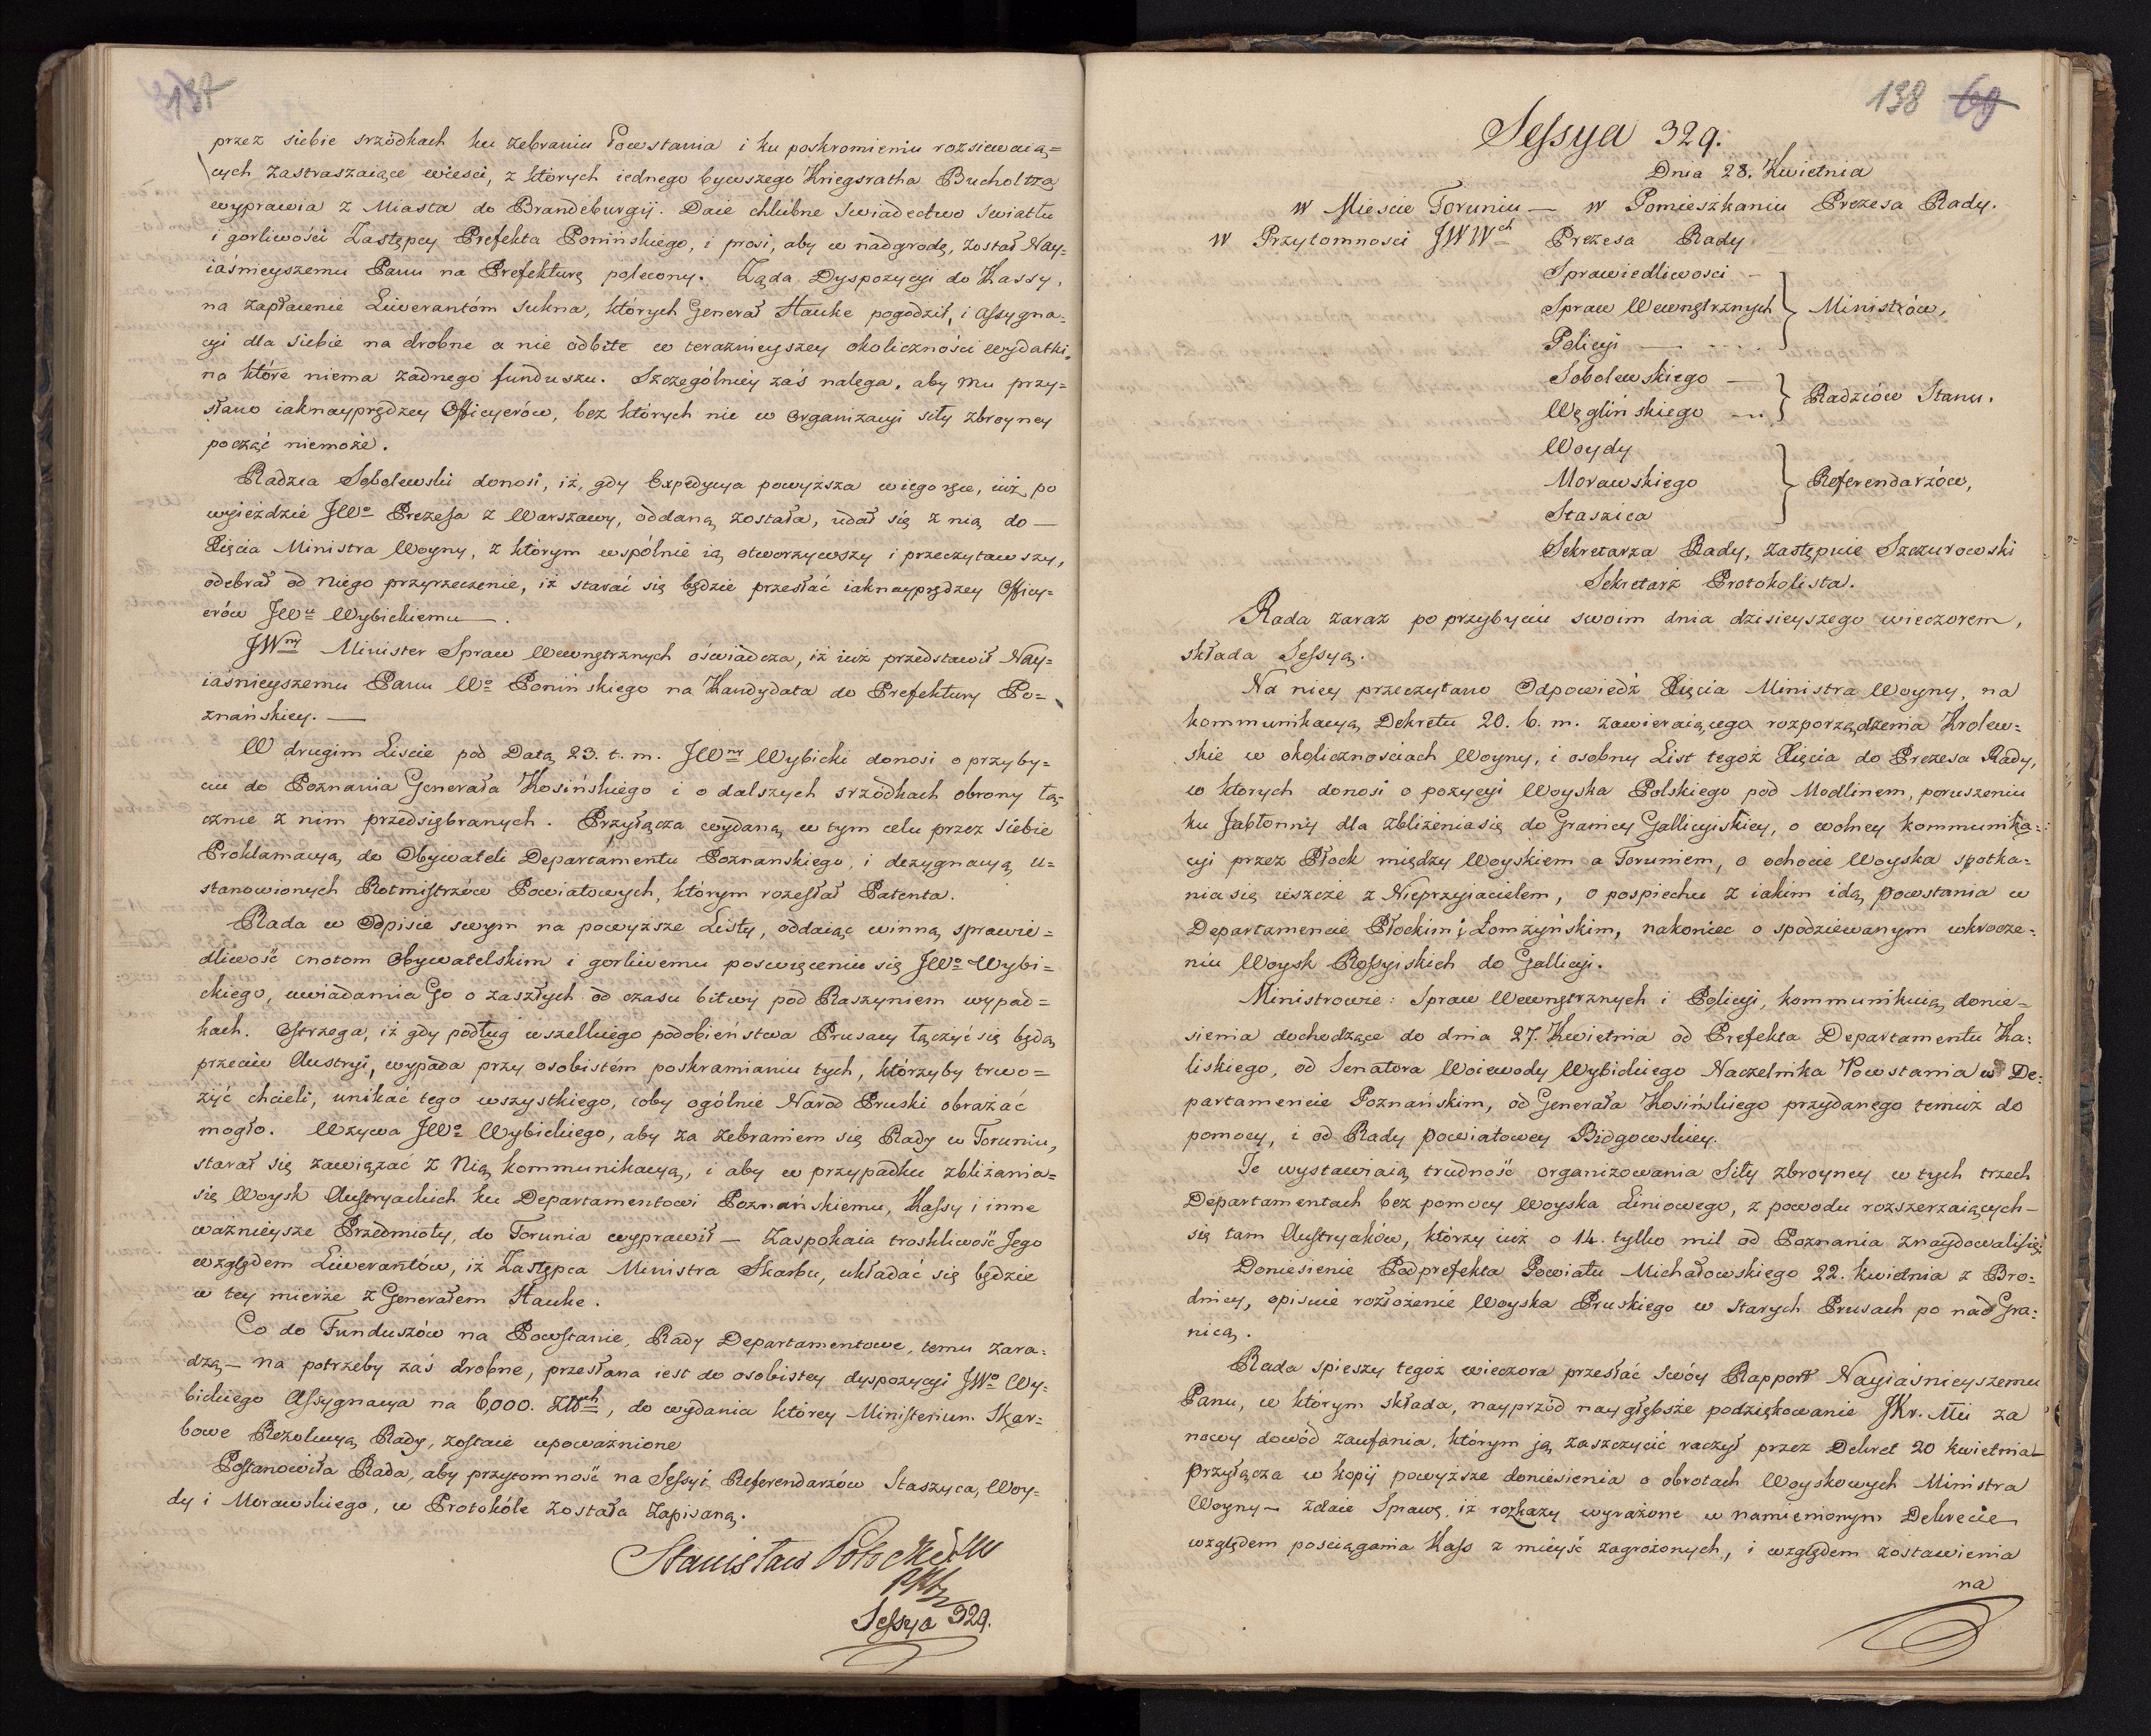 137
przez siebie srzódkach ku zebraniu Powstania i ku poskromieniu rozsiewaią=
cych zastraszaiące wieści, z których iednego bywszego Kriegsratha Bucholtza
wyprawia z Miasta do Brandeburgij. Daie chlubne swiadectwo swiatłu
i gorliwości Zastępcy Prefekta Ponińskiego, i prosi, aby w nadgrodę, został Nay=
iaśnieyszemu Panu na Prefekturę polecony. Żąda Dyspozycyi do Kassy,
na zapłacenie Liwerantóm sukna, których Generał Hauke pogodził, i Assygna=
cyi dla siebie na drobne a nie odbite w teraznieyszey okoliczności wydatki,
na które niema żadnego funduszu. Szczególniey zaś nalega, aby mu przy=
słano iaknayprędzey Officyerów, bez których nic w organizacyi siły zbroyney
począć niemoże.
Radzca Sobolewski donosi, iż, gdy Expedycya powyższa w iego ręce, iuż po
wyieździe JWo Prezesa z Warszawy, oddaną została, udał się z nią do —
Xięcia Ministra Woyny, z którym wspólnie ią otworzywszy i przeczytawszy,
odebrał od niego przyrzeczenie, iż starać się będzie przesłać iaknayprędzey Officy=
erów JWu Wybickiemu —.
JWny Minister Spraw Wewnętrznych oświadcza, iż iuż przedstawił Nay=
iaśnieyszemu Panu Wo Ponińskiego na Kandydata do Prefektury Po=
znańskiey. —
W drugim Liscie pod Datą 23. t. m. JWny Wybicki donosi o przyby=
ciu do Poznania Generała Kosińskiego i o dalszych srzódkach obrony łą=
cznie z nim przedsięбranych. Przyłącza wydaną w tym celu przez siebie
Proklamacyą do Obywateli Departamentu Poznanskiego, i dezygnacyą u=
stanowionych Rotmistrzów Powiatowych, którym rozesłał Patenta.
Rada w Odpisie swym na powyższe Listy, oddaiąc winną sprawie=
dliwość cnotom Obywatelskim i gorliwemu poswięceniu się JWo Wybi=
ckiego, uwiadamia Go o zaszłych od czasu bitwy pod Raszyniem wypad=
kach. Ostrzega, iż gdy podług wszelkiego podobieństwa Prusacy łączyć się będą
przeciw Austryi, wypada przy osobistém poskramianiu tych, którzyby trwo=
żyć chcieli, unikać tego wszystkiego, coby ogólnie Naród Pruski obrażać
mogło. Wzywa JWo Wybickiego, aby za zebraniem się Rady w Toruniu,
starał się zawiązać z Nią kommunikacyą, i aby w przypadku zbliżania=
się Woysk Austryackich ku Departamentowi Poznańskiemu, Kassy i inne
ważnieysze Przedmioty, do Torunia wyprawił — Zaspokaia troskliwość Jego
względem Liwerantów, iż Zastępca Ministra Skarbu, układać się będzie
w tey mierze z Generałem Hauke.
Co do Funduszów na Powstanie, Rady Departamentowe, temu zara=
dzą — na potrzeby zaś drobne, przesłana iest do osobistey dyspozycyi JWo Wy=
bickiego Assygnacya na 6,000. Złtych, do wydania którey Ministerium Skar=
bowe Rezolucyą Rady, zostaie upoważnione
Postanowiła Rada, aby przytomność na Sessyi Referendarzów Staszyca, Woy=
dy i Morawskiego, w Protokóle została zapisaną.
Stanisław Potocki
Sessya 329.
138 69
Sessya 329.
Dnia 28. Kwietnia
w Mieście Toruniu — w Pomieszkaniu Prezesa Rady.
w Przytomności JWWch Prezesa Rady
Sprawiedliwości —
Spraw Wewnętrznych } Ministrów,
Policyi — . . . .
Sobolewskiego —
Węglińskiego — } Radzców Stanu.
Woydy
Morawskiego } Referendarzów,
Staszica
Sekretarza Rady, zastępuie Szczurowski
Sekretarz Protokolista.
Rada zaraz po przybyciu swoim dnia dzisieyszego wieczorem,
składa Sessyą.
Na niey przeczytano Odpowiedź Xięcia Ministra Woyny, na
kommunikacyą Dekretu 20. b. m. zawieraiącego rozporządzenia Krolew=
skie w okolicznościach Woyny, i osobny List tegoż Xięcia do Prezesa Rady,
w których donosi o pozycyi Woyska Polskiego pod Modlinem, poruszeniu
ku Jabłonny dla zbliżeniasię do Granicy Gallicyiskiey, o wolney kommunika=
cyi przez Płock między Woyskiem a Toruniem, o ochocie Woyska spotka=
nia się ieszcze z Nieprzyiacielem, o pospiechu z iakim idą powstania w
Departamencie Płockim i Łomżyńskim, nakoniec o spodziewanym wkrocze=
niu Woysk Rossyiskich do Gallicyi.
Ministrowie: Spraw Wewnętrznych i Policyi, kommunikuią donie=
sienia dochodzące do dnia 27. Kwietnia od Prefekta Departamentu Ka=
liskiego, od Senatora Woiewody Wybickiego Naczelnika Powstania w De=
partamencie Poznańskim, od Generała Kosińskiego przydanego temuż do
pomocy, i od Rady Powiatowey Bidgowskiey.
Te wystawiaią trudność organizowania Siły zbroyney w tych trzech
Departamentach bez pomocy Woyska Liniowego, z powodu rozszerzaiących —
się tam Austryaków, którzy iuż o 14. tylko mil od Poznania znaydowalisię.
Doniesienie Podprefekta Powiatu Michałowskiego 22. kwietnia z Bro=
dnicy, opisuie rozłożenie Woyska Pruskiego w Starych Prusach po nad Gra=
nicą.
Rada spieszy tegoż wieczora przesłać swóy Rapport Nayiaśnieyszemu
Panu, w którym składa, nayprzód naygłębsze podziękowanie JKr. Mci za
nowy dowód zaufania, którym ją zaszczycić raczył przez Dekret 20 kwietnia —
przyłącza w kopij powyższe doniesienia o obrotach Woyskowych Ministra
Woyny — zdaie Sprawę, iż rozkazy wyrażone w namienionym Dekrecie
względem pościągania Kass z mieysc zagrożonych, i względem zostawienia
na